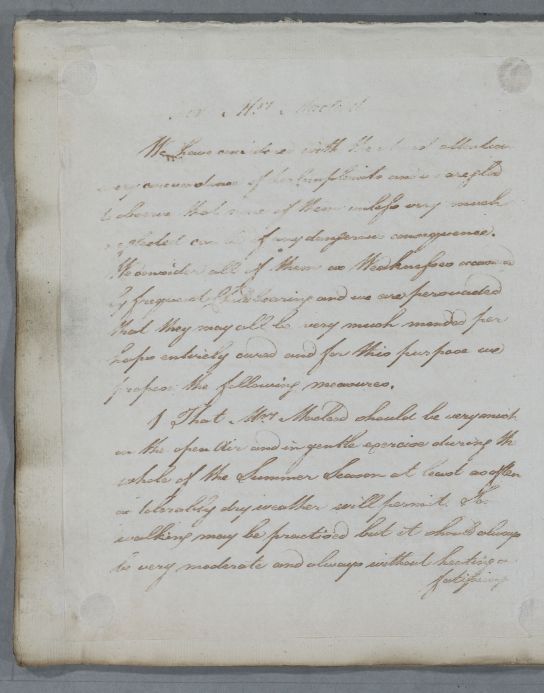 For Mrs Macleod
We have considered with the utmost attention
every circumstance of her complaints and are glad
to observe that none of them unless very much
neglected can be of any dangerous consequence.
We consider all of them as Weaknesses
by frequent Childbearing and we are persuaded
that they may all be very much mended per
haps entirely cured and for this purpose we
propose the following measures.
1 That Mrs Macleod should be very much
in the open Air and in gentle exercise during the
whole of the Summer Season at least as often
as tolerably dry weather will permit.
walking may be practised but it should always
be very moderate and always without heating or
fatiguing